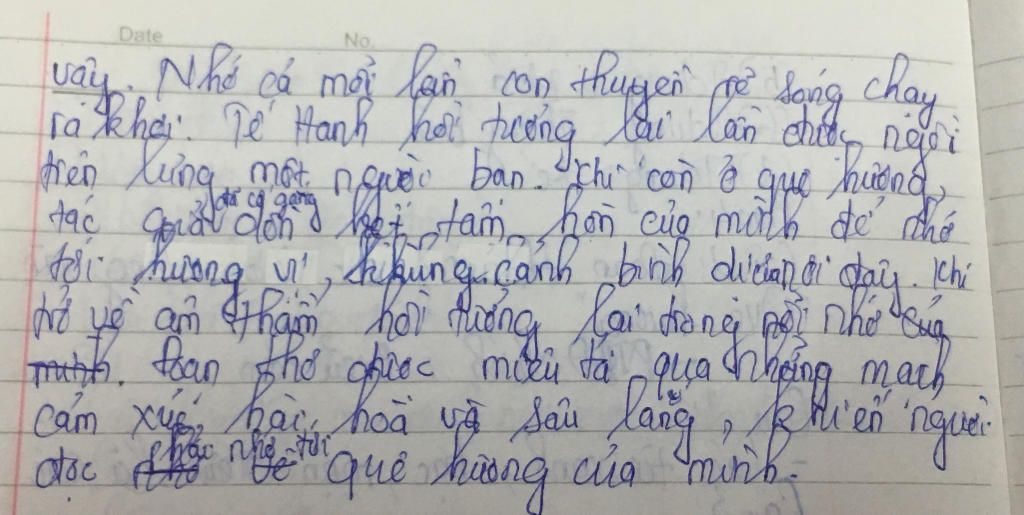 Date No.
vậy. Nhớ cả mỗi lần con thuyền rẽ sóng chạy
ra khơi. Tế Hanh hồi tưởng lại lần được ngồi
trên lưng một người bạn. Khi còn ở quê hương,
tác giả đã cố gắng dồn hết tâm hồn của mình để nhớ
tới hương vị, khung cảnh bình dị của nơi đây. Khi
trở về âm thầm hồi tưởng lại trong nỗi nhớ của
mình. Đoạn thơ được miêu tả qua những mạch
cảm xúc hài hoà và sâu lắng, khiến người
đọc nhớ tới quê hương của mình.